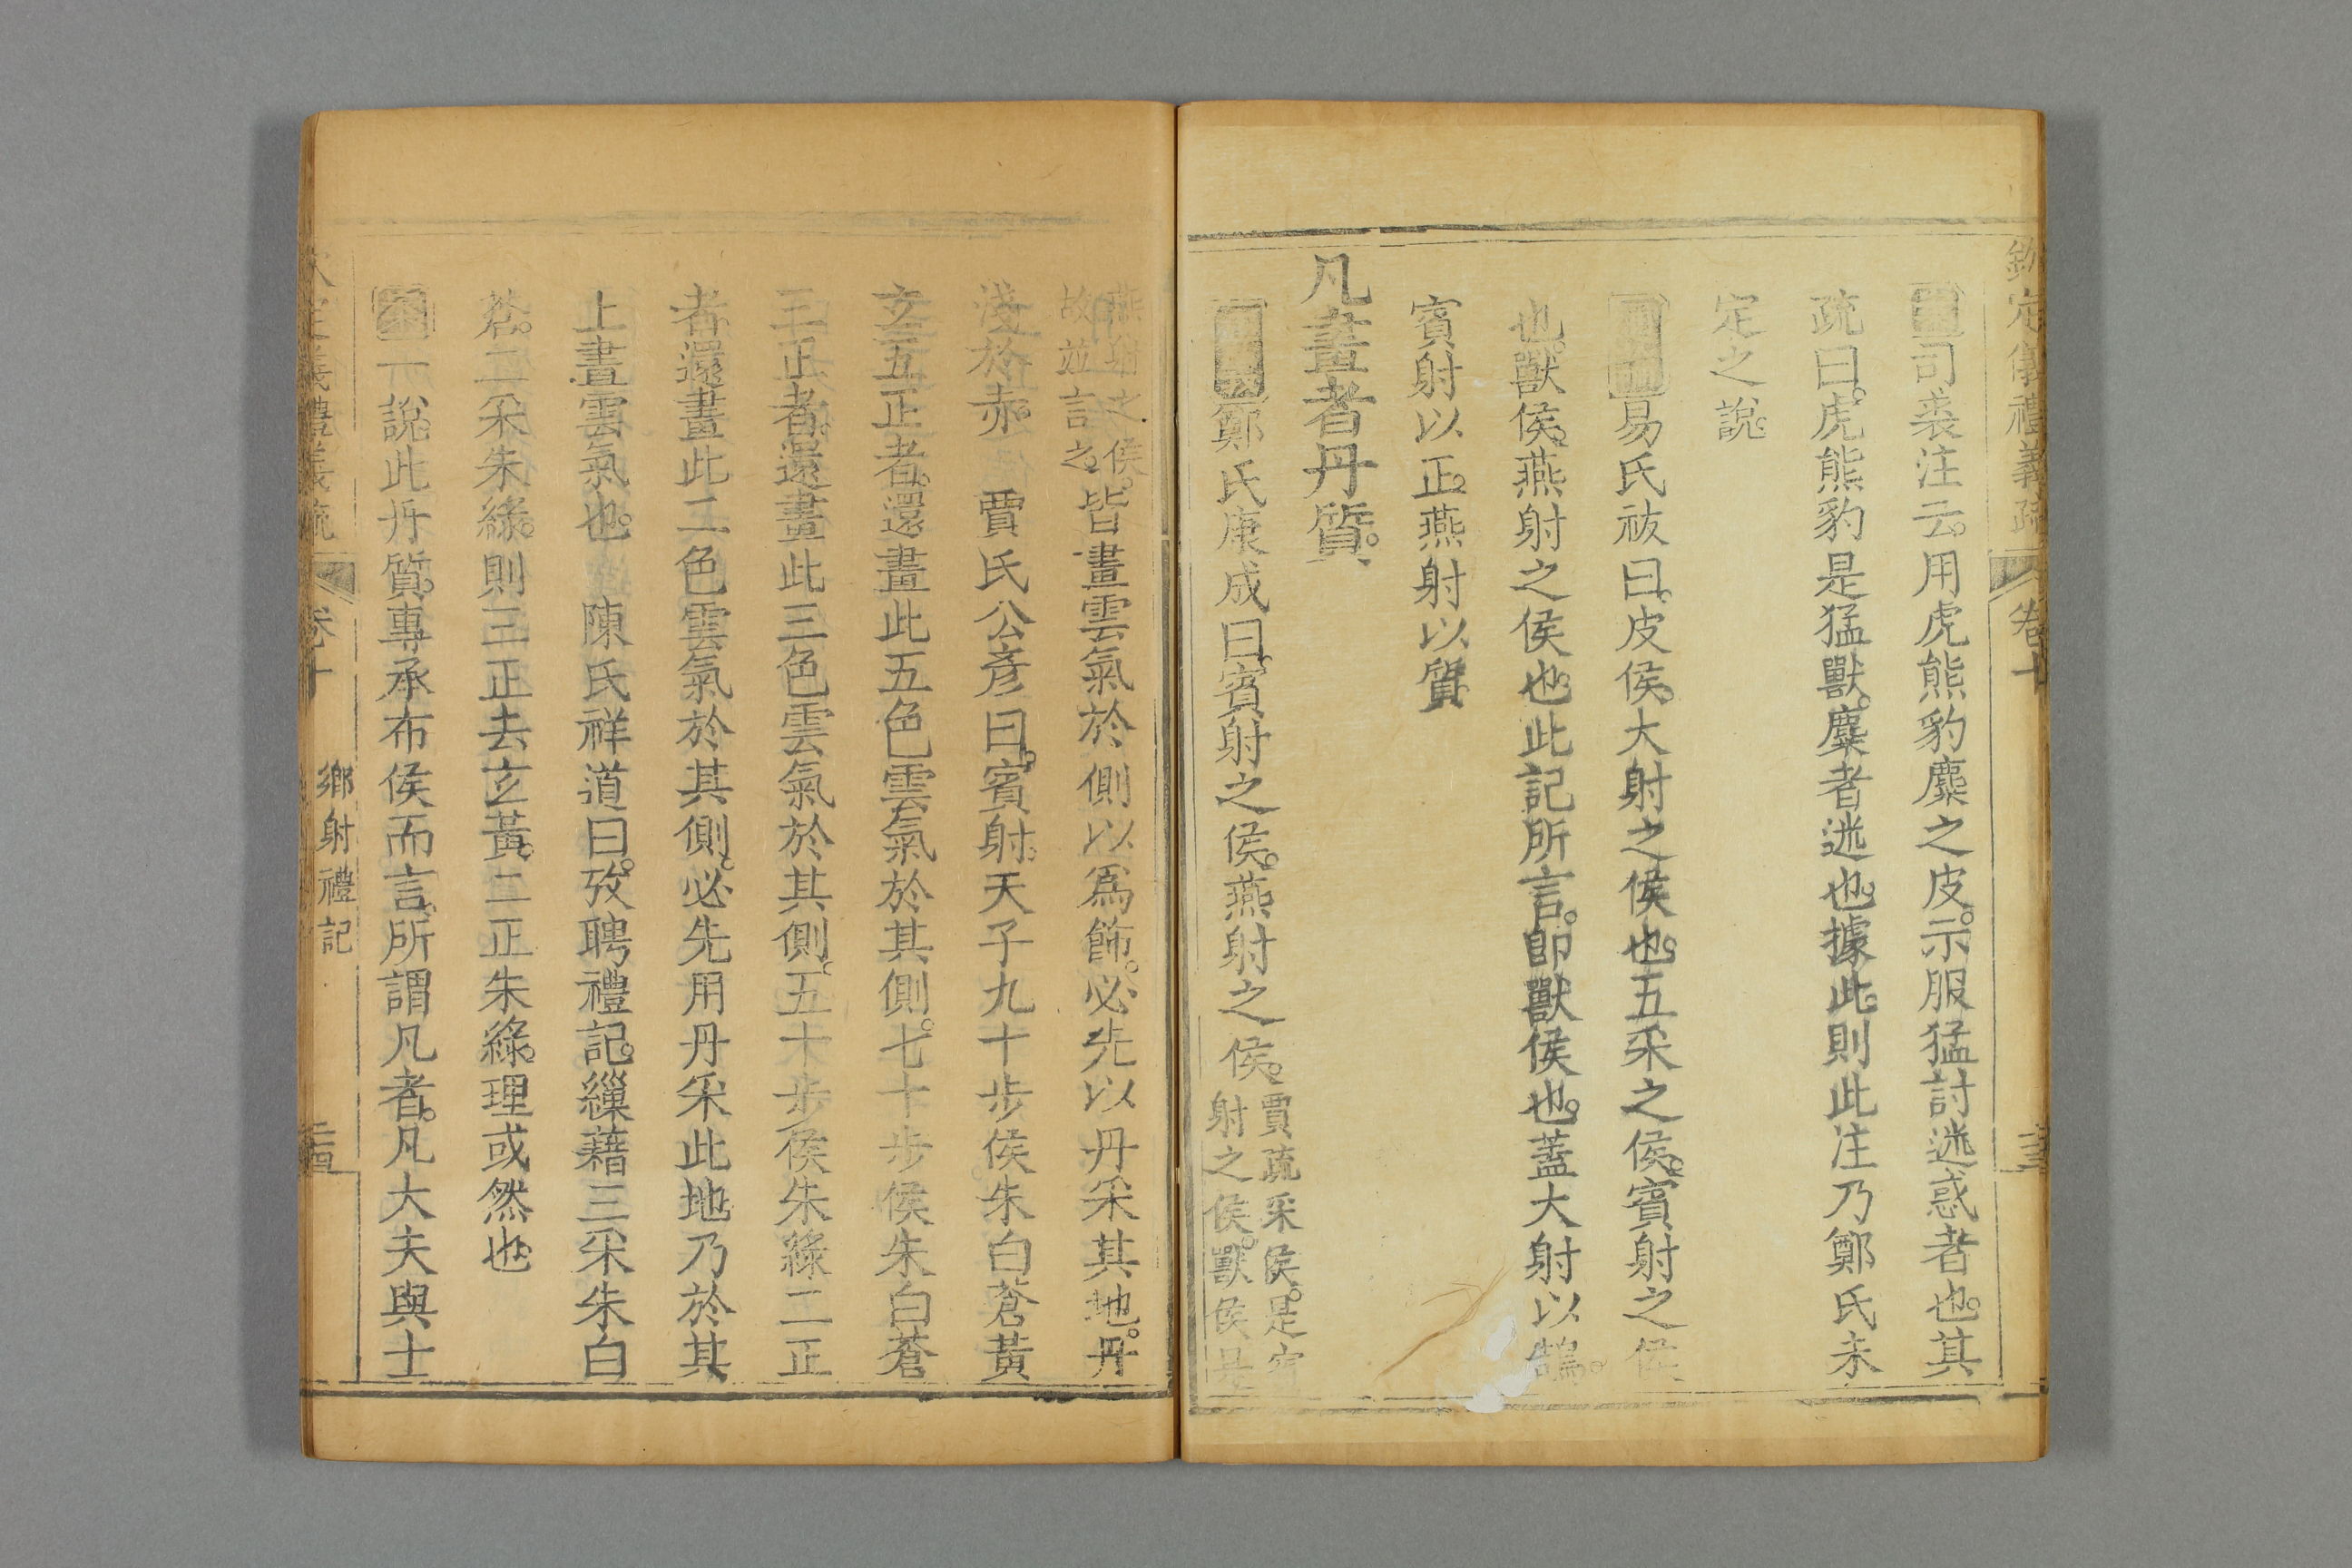 欽定儀禮義疏 卷十
司裘注云用虎熊豹麋之皮示服猛討迷惑者也其
疏曰虎熊豹是猛獸麋者迷也據此則此注乃鄭氏未
定之說
易氏祓曰皮侯大射之侯也五采之侯賓射之侯
也獸侯燕射之侯也此記所言卽獸侯也蓋大射以鵠
賓射以正燕射以質
凡畫者丹質
鄭氏康成曰賓射之侯燕射之侯
賈疏采侯是賓
射之侯獸侯是
燕射之侯
故竝言之
皆畫雲氣於側以爲飾必先以丹采其地丹
淺於赤 賈氏公彥曰賓射天子九十步侯朱白蒼黃
玄五正者還畫此五色雲氣於其側七十步侯朱白蒼
三正者還畫此三色雲氣於其側五十步侯朱綠二正
者還畫此二色雲氣於其側必先用丹采此地乃於其
上畫雲氣也 陳氏祥道曰攷聘禮記繅藉三采朱白
蒼二采朱綠則三正去玄黃二正朱綠理或然也
一說此丹質專承布侯而言所謂凡者凡大夫與士
欽定儀禮義疏 卷十 鄉射禮記